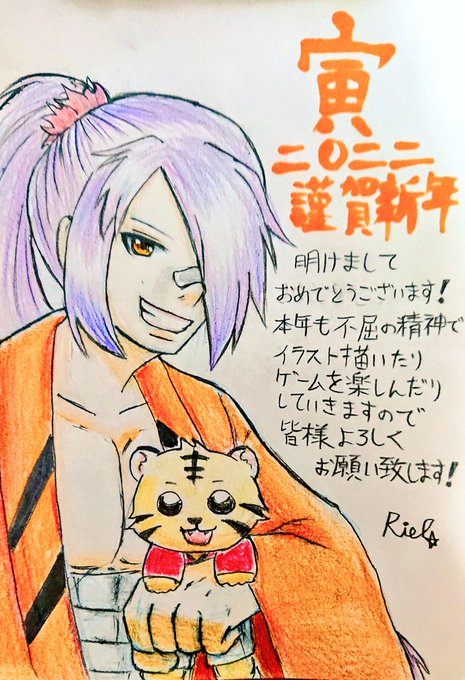 寅
二〇二二
謹賀新年
明けまして
おめでとうございます!
本年も不屈の精神で
イラスト描いたり
ゲームを楽しんだり
していきますので
皆様よろしく
お願い致します!
Riel